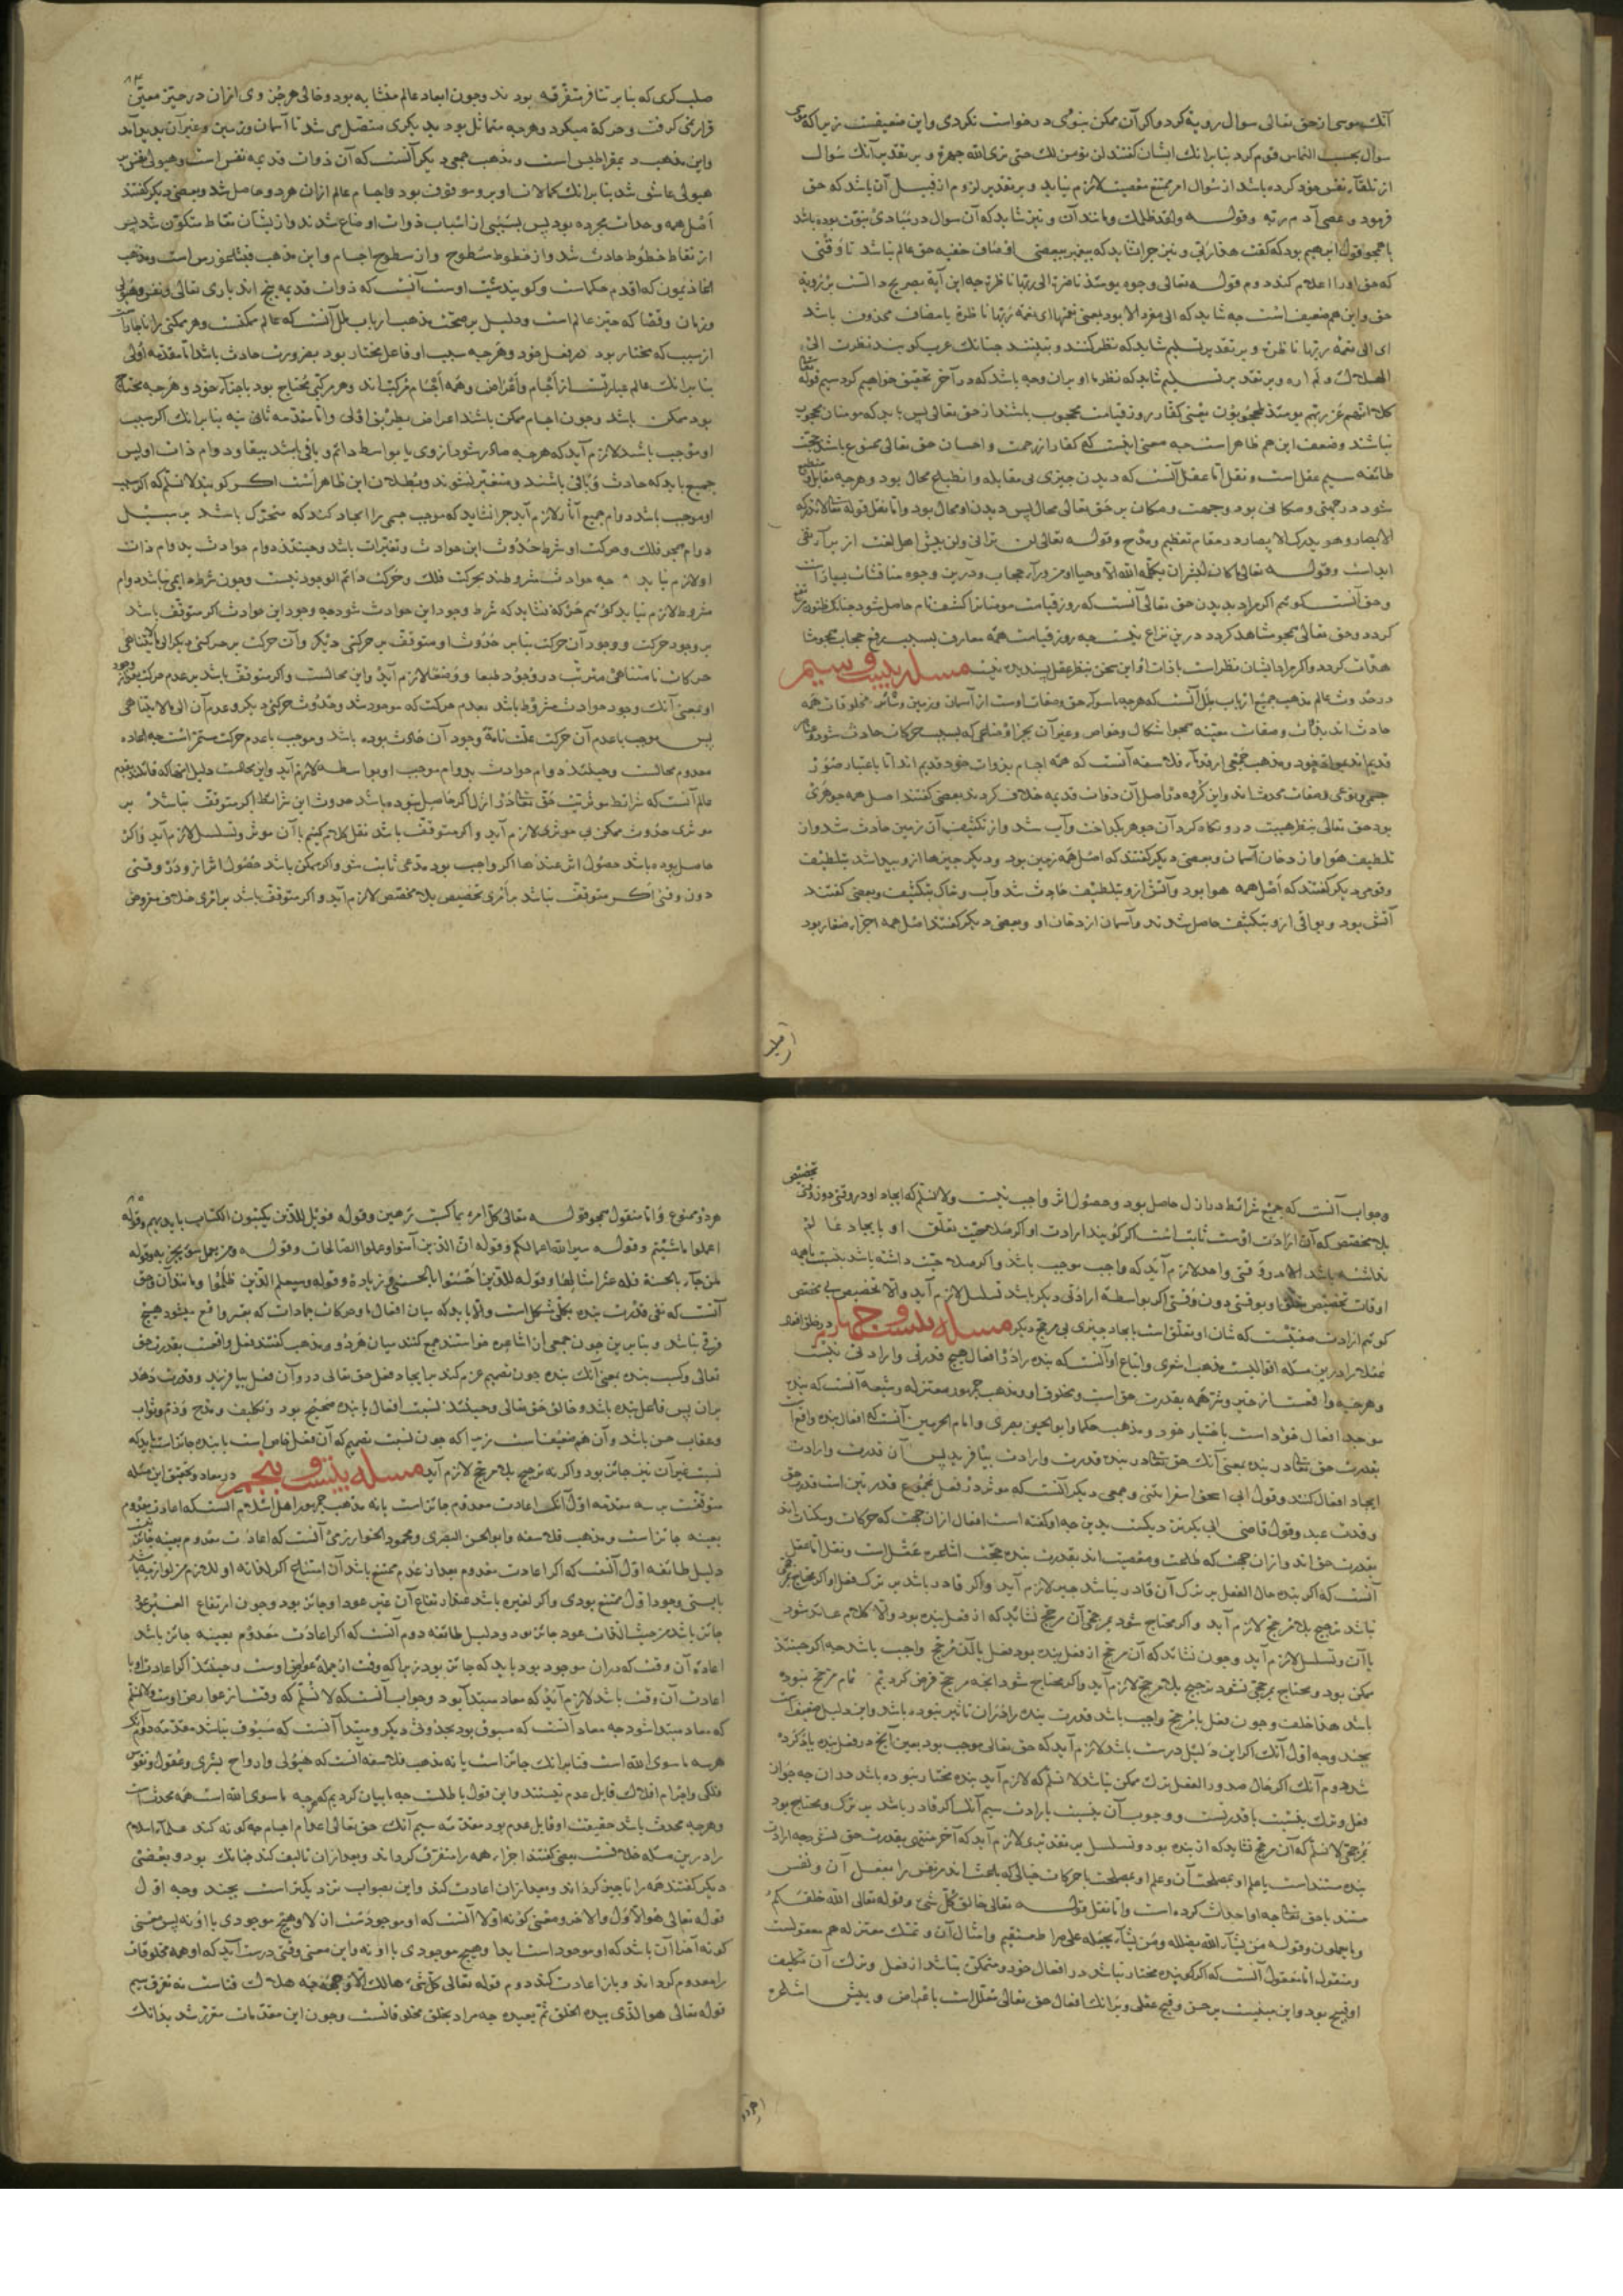 آنک موسی از حق تعالی سوال رویة کرد و اکر آن ممکن نبودی درخواست نکردی و این ضعیفست زیرا که موسی
سوال بحسب التماس قوم کرد بنابرانک ایشان کفتند لن نومن لک حتی نری الله جهرة و بر تقدیر آنک سوال
از تلقاء نفس خود کرده باشد از سوال امر ممتنع معصیت لازم نیاید و بر تقدیر لزوم از قبیل آن باشد که حق
فرمود و عصی آدم ربه وقوله ولقد ظلمک و مانند آن و نیز شاید که آن سوال در مبادی نبوت بوده باشد
یا همچو قول ابرهیم بود که کفت هذا ربی و نیز چرا نشاید که پیغمبر ببعضی اوصاف خفیه حق عالم نباشد تا وقتی
که حق او را اعلام کند دوم قوله تعالی وجوه یومئذ ناضرة الی ربها ناظرة چه این آیة بصریح دالست بر رویة
حق و این هم ضعیف است چه شاید که الی مفرد الا بود یعنی نعمتها ای نعمة ربها ناظرة یا مضاف محذوف باشد
ای الی نعمة ربها ناظرة و بر تقدیر تسلیم شاید که نظر کنند و نبینند چنانک عرب کویند نظرت الی
الهلال و لم اره و بر تقدیر تسلیم شاید که نظر ما او بران وجه باشد که در آخر تحقیق خواهیم کرد سیم قوله تعالی
کلا انهم عن ربهم یومئذ لمحجوبون یعنی کفار روز قیامت محجوب باشند از حق تعالی پس باید که مومنان محجوب
نباشند و ضعف این هم ظاهر است چه معنی اینست که کفار از رحمت و احسان حق تعالی ممنوع باشند حجت
طائفه سیم عقل است و نقل اما عقل آنست که دیدن چیزی بی مقابله و انطباع محال بود و هرچه مقابل و منطبع
شود در جهتی و مکانی بود و جهت و مکان بر حق تعالی محال پس دیدن او محال بود و اما نقل قوله تعالی لا تدرکه
الابصار و هو یدرک الابصار در مقام تعظیم و مدح وقوله تعالی لن ترانی ولن پیش اهل لغت از برای نفی
ابد است وقوله تعالی ما کان لبشر ان یکلمه الله الا وحیا او من وراء حجاب و درین وجوه مناقشات بسیار است
و حق آنست که کوئیم اکر مراد بدیدن حق تعالی آنست که روز قیامت مومنانرا کشف تام حاصل شود چنانک ظنون مرتفع
کردد و حق تعالی همچو مشاهد کردد درین نزاع نیست چه روز قیامت همه معارف بسبب رفع حجاب همچو مشا
هدات کردد و اکر مراد ایشان نظر است با ذات او این سخن بنظر عقل پسندیده نیست مسئله بیست و سیم
در حدوث عالم مذهب جمیع ارباب ملل آنست که هرچه ما سوی حق و صفات اوست از آسمان و زمین و سائر مخلوقات همه
حادث اند بذات و صفات معینه همچو اشکال و خواص و غیر آن بجز اوضاعی که بسبب حرکات حادث شود و عناصر
قدیم اند بمواد خود و مذهب جمعی از قدماء فلاسفه آنست که همه اجسام بذوات خود قدیم اند اما باعتبار صور
جسمی و نوعی و صفات محدث اند و این کروه در اصل آن ذوات قدیمه خلاف کردند بعضی کفتند اصل همه جوهری
بود حق تعالی بنظر هیبت درو نکاه کرد آن جوهر بکداخت و آب شد و از تکثیف آن زمین حادث شد و از
تلطیف هوا و از دخان آسمان و بعضی دیکر کفتند که اصل همه زمین بود و دیکر چیزها ازو پیدا شد بتلطیف
و قومی دیکر کفتند که اصل همه هوا بود و آتش ازو بتلطیف حادث شد و آب و خاک بتکثیف و بعضی کفتند
آتش بود و بواقی ازو بتکثیف حاصل شدند و آسمان از دخان او و بعضی دیکر کفتند اصل همه اجزاء صغار بود
صلب کری که بنابر تنافر متفرقه بودند و چون ابعاد عالم متشابه بود و خالی هر جزوی ازان در حیز معین
قرار نمی کرفت و حرکة میکرد و هرچه متماثل بود بدیکری متصل می شد تا آسمان و زمین و غیر آن پدید آمد
و این مذهب دیمقراطیس است و مذهب جمعی دیکر آنست که آن ذوات قدیمه نفس است و هیولی نفس بر
هیولی عاشق شد بنابرانک کمالات او برو موقوف بود و اجسام عالم ازان هر دو حاصل شد و بعضی دیکر کفتند
اصل همه وحدات مجرده بود پس بسببی از اسباب ذوات اوضاع شدند و از ایشان نقاط متکون شد پس
از نقاط خطوط حادث شد و از خطوط سطوح و از سطوح اجسام و این مذهب فیثاغورس است و مذهب
اغاذیمون که اقدم حکماست و کویند شیث اوست آنست که ذوات قدیمه پنج اند باری تعالی و نفس و هیولی
و زمان و فضا که حیز عالم است و دلیل بر صحت مذهب ارباب ملل آنست که عالم ممکنست و هر ممکنی را ناچار است
از سبب که مختار بود در فعل خود و هرچه سبب او فاعل مختار بود بضرورت حادث باشد اما مقدمه اولی
بنابرانک عالم عبارتست از اجسام و اعراض و همه اجسام مرکب اند و هر مرکبی محتاج بود باجزاء خود و هرچه محتاج
بود ممکن باشد و چون اجسام ممکن باشند اعراض بطریق اولی و اما مقدمه ثانی نیه بنابرانک اکر سبب
او موجب باشد لازم آید که هرچه صادر شود از وی یا بواسط دائم و باقی باشد ببقا و دوام ذات او پس
جمیع باید که حادث و فانی باشند و متغیر نشوند و بطلان این ظاهر است اکر کویند لا نسلم که اکر سبب
او موجب باشد دوام جمیع آثار لازم آید چرا نشاید که موجب جسمی را ایجاد کند که متحرک باشد بر سبیل
دوام همچو فلک و حرکت او شرط حدوث این حوادث و تغیرات باشد و حینئذ دوام حوادث بدوام ذات
او لازم نیاید چه حوادث مشروطند بحرکت فلک و حرکت دائم الوجود نیست و چون شرط دائمی نباشد دوام
مشروط لازم نیاید کوئیم حرکة نشاید که شرط وجود این حوادث شود چه وجود این حوادث اکر متوقف باشد
بر وجود حرکت و وجود آن حرکت بنابر حدوث او متوقف بر حرکتی دیکر و آن حرکت بر حرکتی دیکر الی لا یتناهی
حرکات نا متناهی مترتب در وجود طبعا و وضعا لازم آید و این محالست و اکر متوقف باشد بر عدم حرکت
او بمعنی آنک وجود حوادث مشروط باشد بعدم حرکت که موجود شد و حدوث حرکتی دیکر و عدم آن الی لا یتناهی
پس موجب با عدم آن حرکت علت تامه وجود آن حادث بوده باشد و موجب با عدم حرکت مستمر است چه اعاده
معدوم محالست و حینئذ دوام حوادث بدوام موجب او بواسطه لازم آید و این محالست دلیل آنها که قائلند بقدم
عالم آنست که شرائط موثریت حق تعالی در ازل اکر حاصل نبوده باشد حدوث این شرائط اکر متوقف نباشد بر
موثری حدوث ممکن بی موثری لازم آید و اکر متوقف باشد نقل کلام کنیم با آن موثر و تسلسل لازم آید و اکر
حاصل بوده باشد حصول اثر عندها اکر واجب بود مدعی ثابت شود و اکر ممکن باشد حصول اثر ازو در وقتی
دون وقتی اکر متوقف نباشد بر امری تخصیص بلا مخصص لازم آید و اکر متوقف باشد بر امری خلاف مفروض
و جواب آنست که جمیع شرائط در ازل حاصل بود و حصول اثر واجب نیست ولا نسلم که ایجاد او در وقتی دون وقتی تخصیص
بلا مخصص که آن ارادت اوست ثابت است اکر کویند ارادت او اکر صلاحیت تعلق او بایجاد عالم
نداشته باشد الا در وقتی واحد لازم آید که واجب موجب باشد و اکر صلاحیت داشته باشد بنسبت با همه
اوقات تخصیص تعلق او بوقتی دون وقتی اکر بواسطه ارادتی دیکر باشد تسلسل لازم آید و الا تخصیص بی مخصص
کوئیم ارادت صفتیست که شان او تعلق است بایجاد چیزی بی مرجح دیکر مسئله بیست و چهارم در خلق افعال
عقلا را درین مسئله اقوالیست مذهب اشعری و اتباع او آنست که بنده را در افعال هیچ قدرتی و ارادتی نیست
و هرچه واقعست از خیر و شر همه بقدرت حق است و مخلوق او و مذهب جمهور معتزله و شیعه آنست که بنده
موجد افعال خود است باختیار خود و مذهب حکما و ابو الحسین بصری و امام الحرمین آنست که افعال بنده واقع است
بقدرت حق تعالی در بنده بمعنی آنک حق تعالی در بنده قدرت و ارادت بیافرید پس آن قدرت و ارادت
ایجاد افعال کنند و قول ابی اسحق اسفراینی و جمعی دیکر آنست که موثر در فعل مجموع قدرتین است قدرت حق
و قدرت عبد و قول قاضی ابی بکر نزدیکست بدین چه او کفته است افعال ازان جهت که حرکات و سکنات اند
بقدرت حق اند و ازان جهت که طاعت و معصیت اند بقدرت بنده حجت اشاعره عقل است و نقل اما عقل
آنست که اکر بنده حال الفعل بر ترک آن قادر نباشد جبر لازم آید و اکر قادر باشد بر ترک فعل او اکر محتاج بمرجحی
نباشد ترجیح بلا مرجح لازم آید و اکر محتاج شود بمرجحی آن مرجح نشاید که از فعل بنده بود و الا کلام عائد شود
با آن و تسلسل لازم آید و چون نشاید که آن مرجح از فعل بنده بود فعل با آن مرجح واجب باشد چه اکر حینئذ
ممکن بود و محتاج بمرجحی نشود ترجیح بلا مرجح لازم آید و اکر محتاج شود آنچه مرجح فرض کردیم تمام مرجح نبوده
باشد هذا خلف و چون فعل با مرجح واجب باشد قدرت بنده را دران تاثیر نبوده باشد و این دلیل ضعیف است
بچند وجه اول آنک اکر این دلیل درست باشد لازم آید که حق تعالی موجب بود بعین آنچ در فعل بنده یاد کرده
شد دوم آنک اکر حال صدور الفعل ترک ممکن نباشد لا نسلم که لازم آید بنده مختار نبوده باشد دران چه جواز
فعل و ترک بنسبت با قدرتست و وجوب آن بنسبت بارادت سیم آنک اکر قادر باشد بر ترک و محتاج بود
بمرجحی لا نسلم که آن مرجح نشاید که از بنده بود و تسلسل بر تقدیری لازم آید که آخر منتهی بقدرت حق نشود چه ارادت
بنده مستند است با علم او بمصلحت آن و علم او بمصلحت با حرکات خیالی که باعث اند مر نفس را بفعل آن و نفس
مستند با حق تعالی چه او احداث کرده است و اما نقل قوله تعالی خالق کل شی وقوله تعالی الله خلقکم
وما تعملون وقوله من یشاء الله یضلله ومن یشاء یجعله علی صراط مستقیم و امثال آن و تمسک معتزله هم معقولست
و منقول اما معقول آنست که اکر کوئی بنده مختار نباشد در افعال خود و متمکن نباشد از فعل و ترک آن تکلیف
او قبیح بود و این مبنیست بر حسن و قبح عقلی و برانک افعال حق تعالی معلل است باغراض و پیش اشاعره
هر دو ممنوع و اما منقول همچو قوله تعالی کل امرء بما کسب رهین وقوله فویل للذین یکتبون الکتاب بایدیهم وقوله
اعملوا ما شئتم وقوله سیرالله اعمالکم وقوله ان الذین آمنوا وعملوا الصالحات وقوله ومن یعمل سوء یجز به وقوله
من جاء بالحسنة فله عشر امثالها وقوله للذین احسنوا الحسنی و زیادة وقوله وسیعلم الذین ظلموا و مانند آن و حق
آنست که نفی قدرت بنده بکلی مشکل است و الا باید که میان افعال ما و حرکات جمادات که بقسر واقع میشود هیچ
فرقی نباشد و بنابر این چون جمعی از اشاعره خواستند جمع کنند میان هر دو مذهب کفتند فعل واقعست بقدرت حق
تعالی و کسب بنده بمعنی آنک بنده چون تصمیم عزم کند بر ایجاد فعل حق تعالی درو آن فعل بیافریند و قدرت دهد
بران پس فاعل بنده باشد و خالق حق تعالی و حینئذ نسبت افعال با بنده صحیح بود و تکلیف و مدح و ذم و ثواب
و عقاب حسن باشد و آن هم ضعیفست زیرا که چون نسبت تصمیم که آن فعل خاص است با بنده جائز است باید که
نسبت غیر آن نیز جائز بود و اکر نه ترجیح بلا مرجح لازم آید مسئله بیست و پنجم در معاد و تحقیق این مسئله
موقوفست بر سه مقدمه اول آنک اعادت معدوم جائز است یا نه مذهب جمهور اهل اسلام آنست که اعادت معدوم
بعینه جائز است و مذهب فلاسفه و ابو الحسن البصری و محمود الخوارزمی آنست که اعادت معدوم بعینه جائز نیست
دلیل طائفه اول آنست که اکر اعادت معدوم بعد از عدم ممتنع باشد آن امتناع اکر لذاته او للازم من لوازمه باشد
بایستی وجود اول ممتنع بودی و اکر لغیره باشد عند ارتفاع آن غیر عود او جائز بود و چون ارتفاع الغیر
جائز باشد من حیث الذات عود جائز بود و دلیل طائفه دوم آنست که اکر اعادت معدوم بعینه جائز باشد
اعاده آن وقت که دران موجود بود باید که جائز بود زیرا که وقت از جمله عوارض اوست و حینئذ اکر اعادت او با
اعادت آن وقت باشد لازم آید که معاد مبتدا بود و جواب آنست که لا نسلم که وقت از عوارض اوست ولا نسلم
که معاد مبتدا شود چه معاد آنست که مسبوق بود بحدوثی دیکر و مبتدا آنست که مسبوق نباشد مقدمه دوم آنک
هرچه ما سوی الله است فنا برانک جائز است یا نه مذهب فلاسفه آنست که هیولی و ارواح بشری و عقول و نفوس
فلکی و اجرام افلاک قابل عدم نیستند و این قول باطلست چه ما بیان کردیم که هرچه ما سوی الله است همه محدث است
و هرچه محدث باشد حقیقت او قابل عدم بود مقدمه سیم آنک حق تعالی اعدام اجسام چه کونه کند علماء اسلام
را درین مسئله خلافست بعضی کفتند اجزاء همه را متفرق کرداند و بعد ازان تالیف کند چنانک بود و بعضی
دیکر کفتند همه را ناچیز کرداند و بعد ازان اعادت کند و این بصواب نزدیکتر است بچند وجه اول
قوله تعالی هو الاول والاخر و معنی کونه اولا آنست که او موجود شد ازلا و هیچ موجودی با او نه پس معنی
کونه آخرا آن باشد که او موجود است ابدا و هیچ موجودی با او نه و این معنی وقتی درست آید که او همه مخلوقات
را معدوم کرداند و باز اعادت کند دوم قوله تعالی کل شیء هالک الا وجهه چه هلاک فناست نه تفرق سیم
قوله تعالی هو الذی یبدء الخلق ثم یعیده چه مراد بخلق مخلوقاتست و چون این مقدمات مقرر شد بدانک